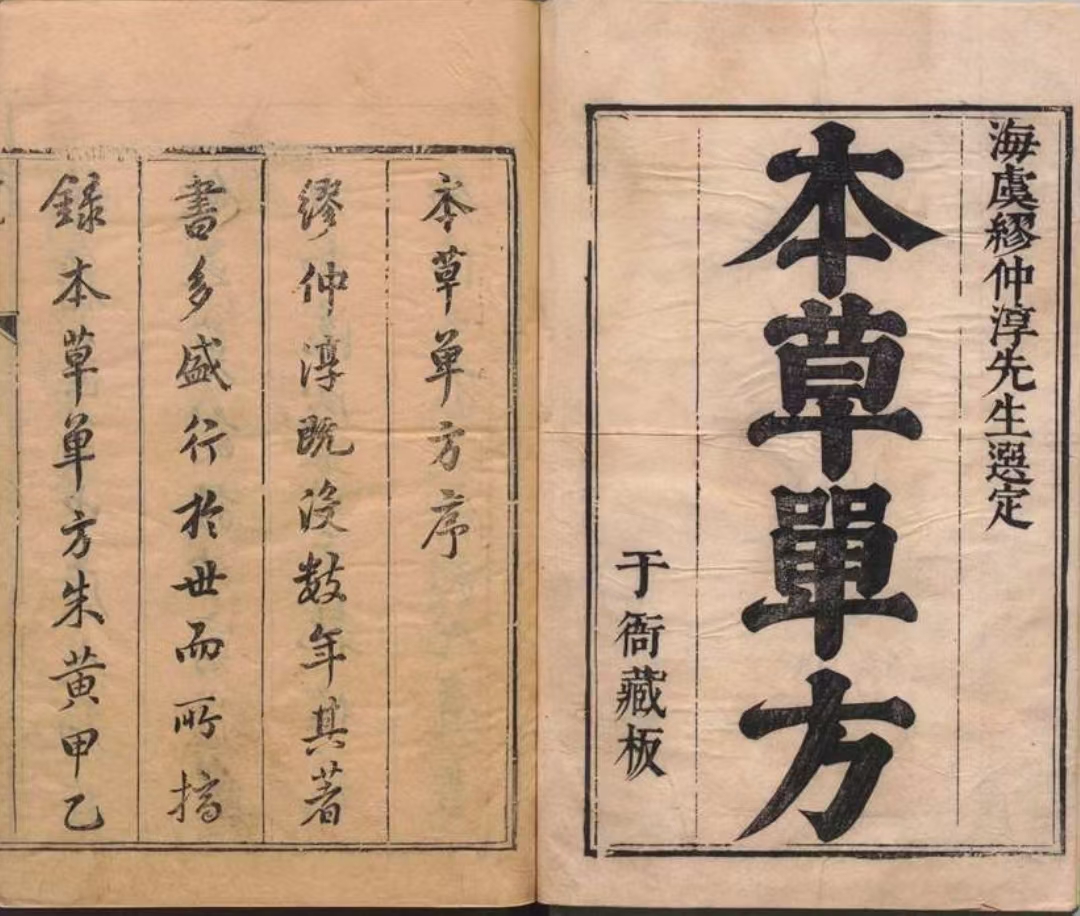 海虞繆仲淳先生選定
本草單方
于衙藏板
本草单方序
繆仲淳既没数年其著
書多盛行於世而所摘
録本草单方朱黄甲乙